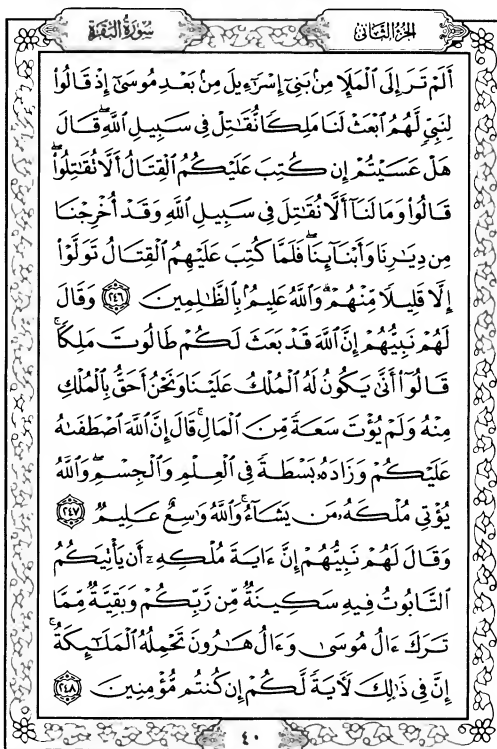 سُورَةُ البَقَرَةِ
الجزء الثاني
أَلَمۡ تَرَ إِلَى ٱلۡمَلَإِ مِنۢ بَنِيٓ إِسۡرَٰٓءِيلَ مِنۢ بَعۡدِ مُوسَىٰٓ إِذۡ قَالُواْ
لِنَبِيّٖ لَّهُمُ ٱبۡعَثۡ لَنَا مَلِكٗا نُّقَٰتِلۡ فِي سَبِيلِ ٱللَّهِۖ قَالَ
هَلۡ عَسَيۡتُمۡ إِن كُتِبَ عَلَيۡكُمُ ٱلۡقِتَالُ أَلَّا تُقَٰتِلُواْۖ
قَالُواْ وَمَا لَنَآ أَلَّا نُقَٰتِلَ فِي سَبِيلِ ٱللَّهِ وَقَدۡ أُخۡرِجۡنَا
مِن دِيَٰرِنَا وَأَبۡنَآئِنَاۖ فَلَمَّا كُتِبَ عَلَيۡهِمُ ٱلۡقِتَالُ تَوَلَّوۡاْ
إِلَّا قَلِيلٗا مِّنۡهُمۡۗ وَٱللَّهُ عَلِيمُۢ بِٱلظَّٰلِمِينَ ٢٤٦ وَقَالَ
لَهُمۡ نَبِيُّهُمۡ إِنَّ ٱللَّهَ قَدۡ بَعَثَ لَكُمۡ طَالُوتَ مَلِكٗاۚ
قَالُوٓاْ أَنَّىٰ يَكُونُ لَهُ ٱلۡمُلۡكُ عَلَيۡنَا وَنَحۡنُ أَحَقُّ بِٱلۡمُلۡكِ
مِنۡهُ وَلَمۡ يُؤۡتَ سَعَةٗ مِّنَ ٱلۡمَالِۚ قَالَ إِنَّ ٱللَّهَ ٱصۡطَفَىٰهُ
عَلَيۡكُمۡ وَزَادَهُۥ بَسۡطَةٗ فِي ٱلۡعِلۡمِ وَٱلۡجِسۡمِۖ وَٱللَّهُ
يُؤۡتِي مُلۡكَهُۥ مَن يَشَآءُۚ وَٱللَّهُ وَٰسِعٌ عَلِيمٞ ٢٤٧
وَقَالَ لَهُمۡ نَبِيُّهُمۡ إِنَّ ءَايَةَ مُلۡكِهِۦٓ أَن يَأۡتِيَكُمُ
ٱلتَّابُوتُ فِيهِ سَكِينَةٞ مِّن رَّبِّكُمۡ وَبَقِيَّةٞ مِّمَّا
تَرَكَ ءَالُ مُوسَىٰ وَءَالُ هَٰرُونَ تَحۡمِلُهُ ٱلۡمَلَٰٓئِكَةُۚ
إِنَّ فِي ذَٰلِكَ لَأٓيَةٗ لَّكُمۡ إِن كُنتُم مُّؤۡمِنِينَ ٢٤٨
٤٠